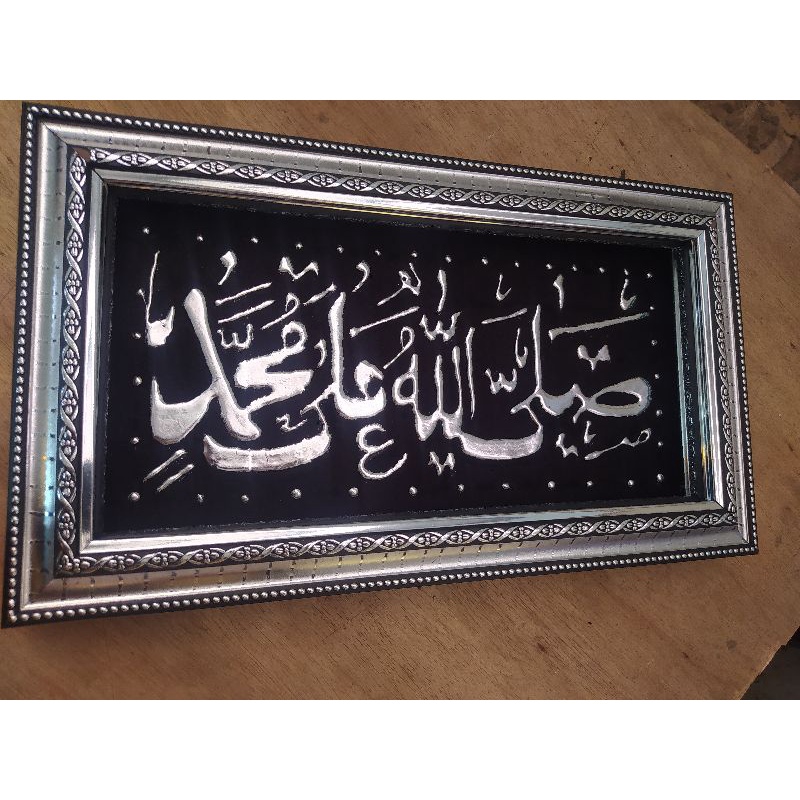 صَلَّى اللهُ عَلَى مُحَمَّدٍ